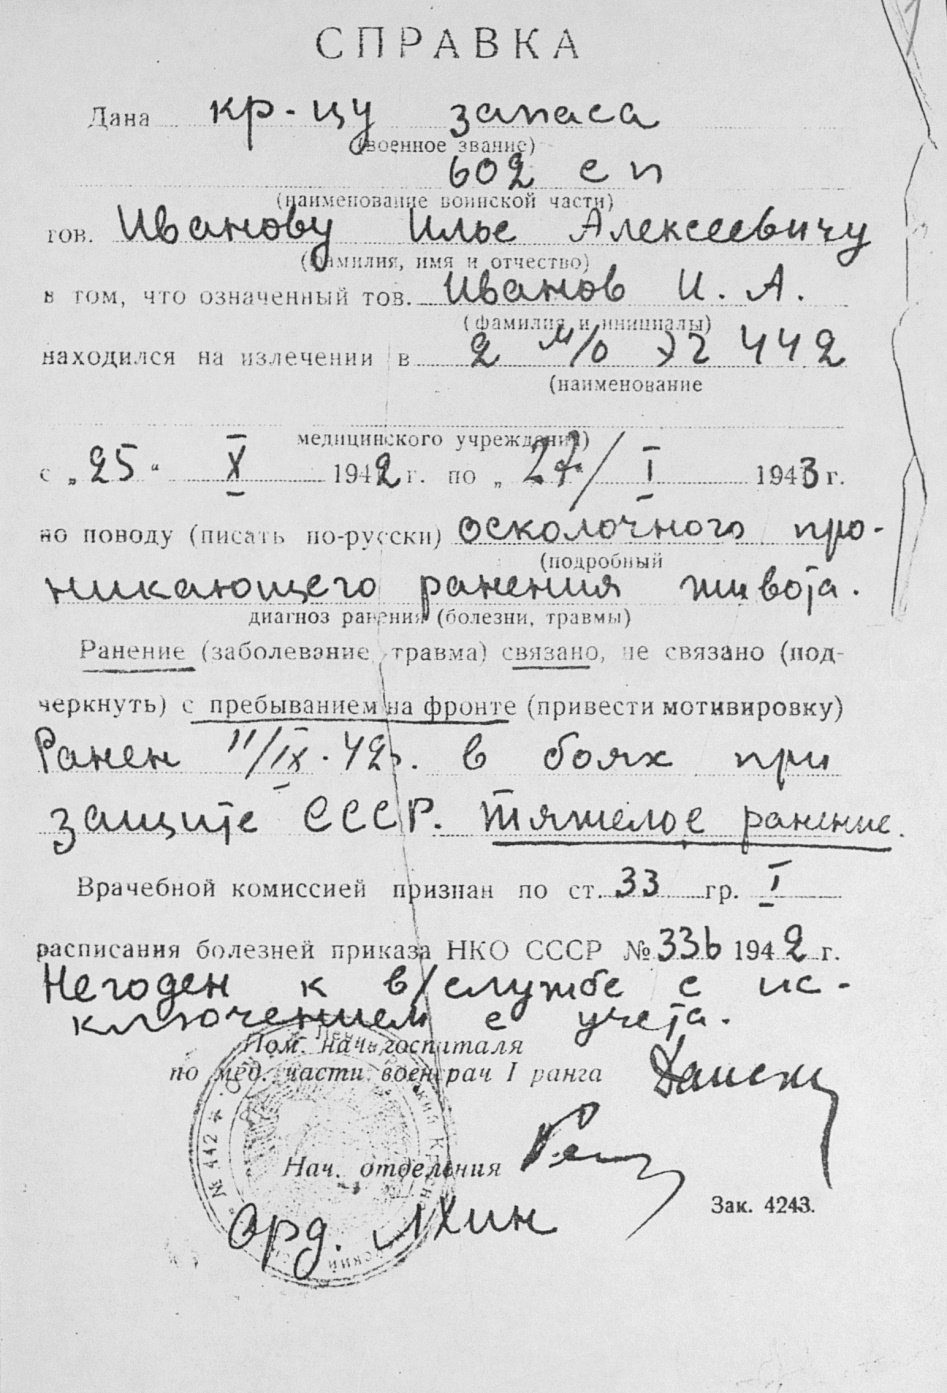 СПРАВКА
Дана кр-цу запаса
(военное звание)
602 сп
(наименование воинской части)
тов. Иванову Илье Алексеевичу
(фамилия, имя и отчество)
в том, что означенный тов. Иванов И. А.
(фамилия и инициалы)
находился на излечении в 2 м/о ЭГ 442
(наименование
медицинского учреждения)
с „25“ X 1942 г. по „27/ I 1943 г.
по поводу (писать по-русски) осколочного про-
(подробный
никающего ранения живота.
диагноз ранения (болезни, травмы)
Ранение (заболевание, травма) связано, не связано (под-
черкнуть) с пребыванием на фронте (привести мотивировку)
Ранен 11/IX. 42г. в боях при
защите СССР. Тяжелое ранение.
Врачебной комиссией признан по ст. 33 гр. I
расписания болезней приказа НКО СССР № 336 1942 г.
Негоден к в/службе с ис-
ключением с учета.
Пом. нач. госпиталя
по мед. части военврач I ранга
Нач. отделения
Зак. 4243.
Орд.
№ 442